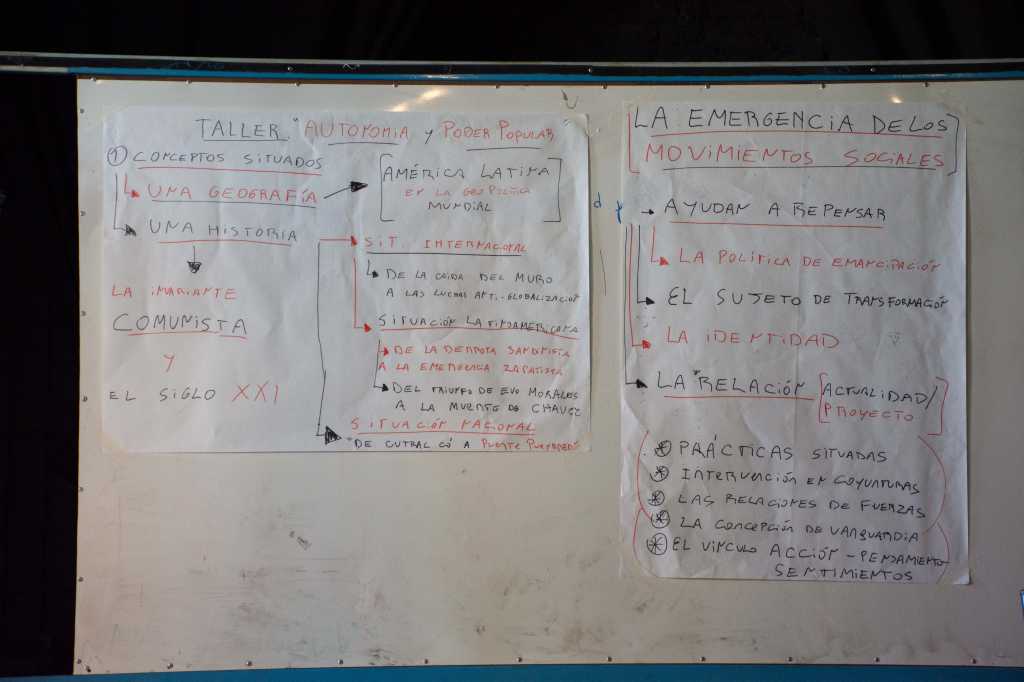 TALLER "AUTONOMIA y PODER POPULAR"
① CONCEPTOS SITUADOS
UNA GEOGRAFÍA
AMÉRICA LATINA
EN LA GEOPOLÍTICA
MUNDIAL
UNA HISTORIA
LA INVARIANTE
COMUNISTA
Y
EL SIGLO XXI
SIT. INTERNACIONAL
DE LA CAIDA DEL MURO
A LAS LUCHAS ANTI-GLOBALIZACIÓN
SITUACIÓN LATINOAMERICANA
DE LA DERROTA SANDINISTA
A LA EMERGENCIA ZAPATISTA
DEL TRIUNFO DE EVO MORALES
A LA MUERTE DE CHAVEZ
SITUACIÓN NACIONAL
"DE CUTRAL CÓ A PUENTE PUEYRREDÓN"
LA EMERGENCIA DE LOS
MOVIMIENTOS SOCIALES
AYUDAN A REPENSAR
LA POLÍTICA DE EMANCIPACIÓN
EL SUJETO DE TRANSFORMACIÓN
LA IDENTIDAD
LA RELACIÓN [ACTUALIDAD/
PROYECTO]
PRÁCTICAS SITUADAS
INTERVENCIÓN EN COYUNTURAS
LAS RELACIONES DE FUERZAS
LA CONCEPCIÓN DE VANGUARDIA
EL VINCULO ACCIÓN - PENSAMIENTO-
SENTIMIENTOS